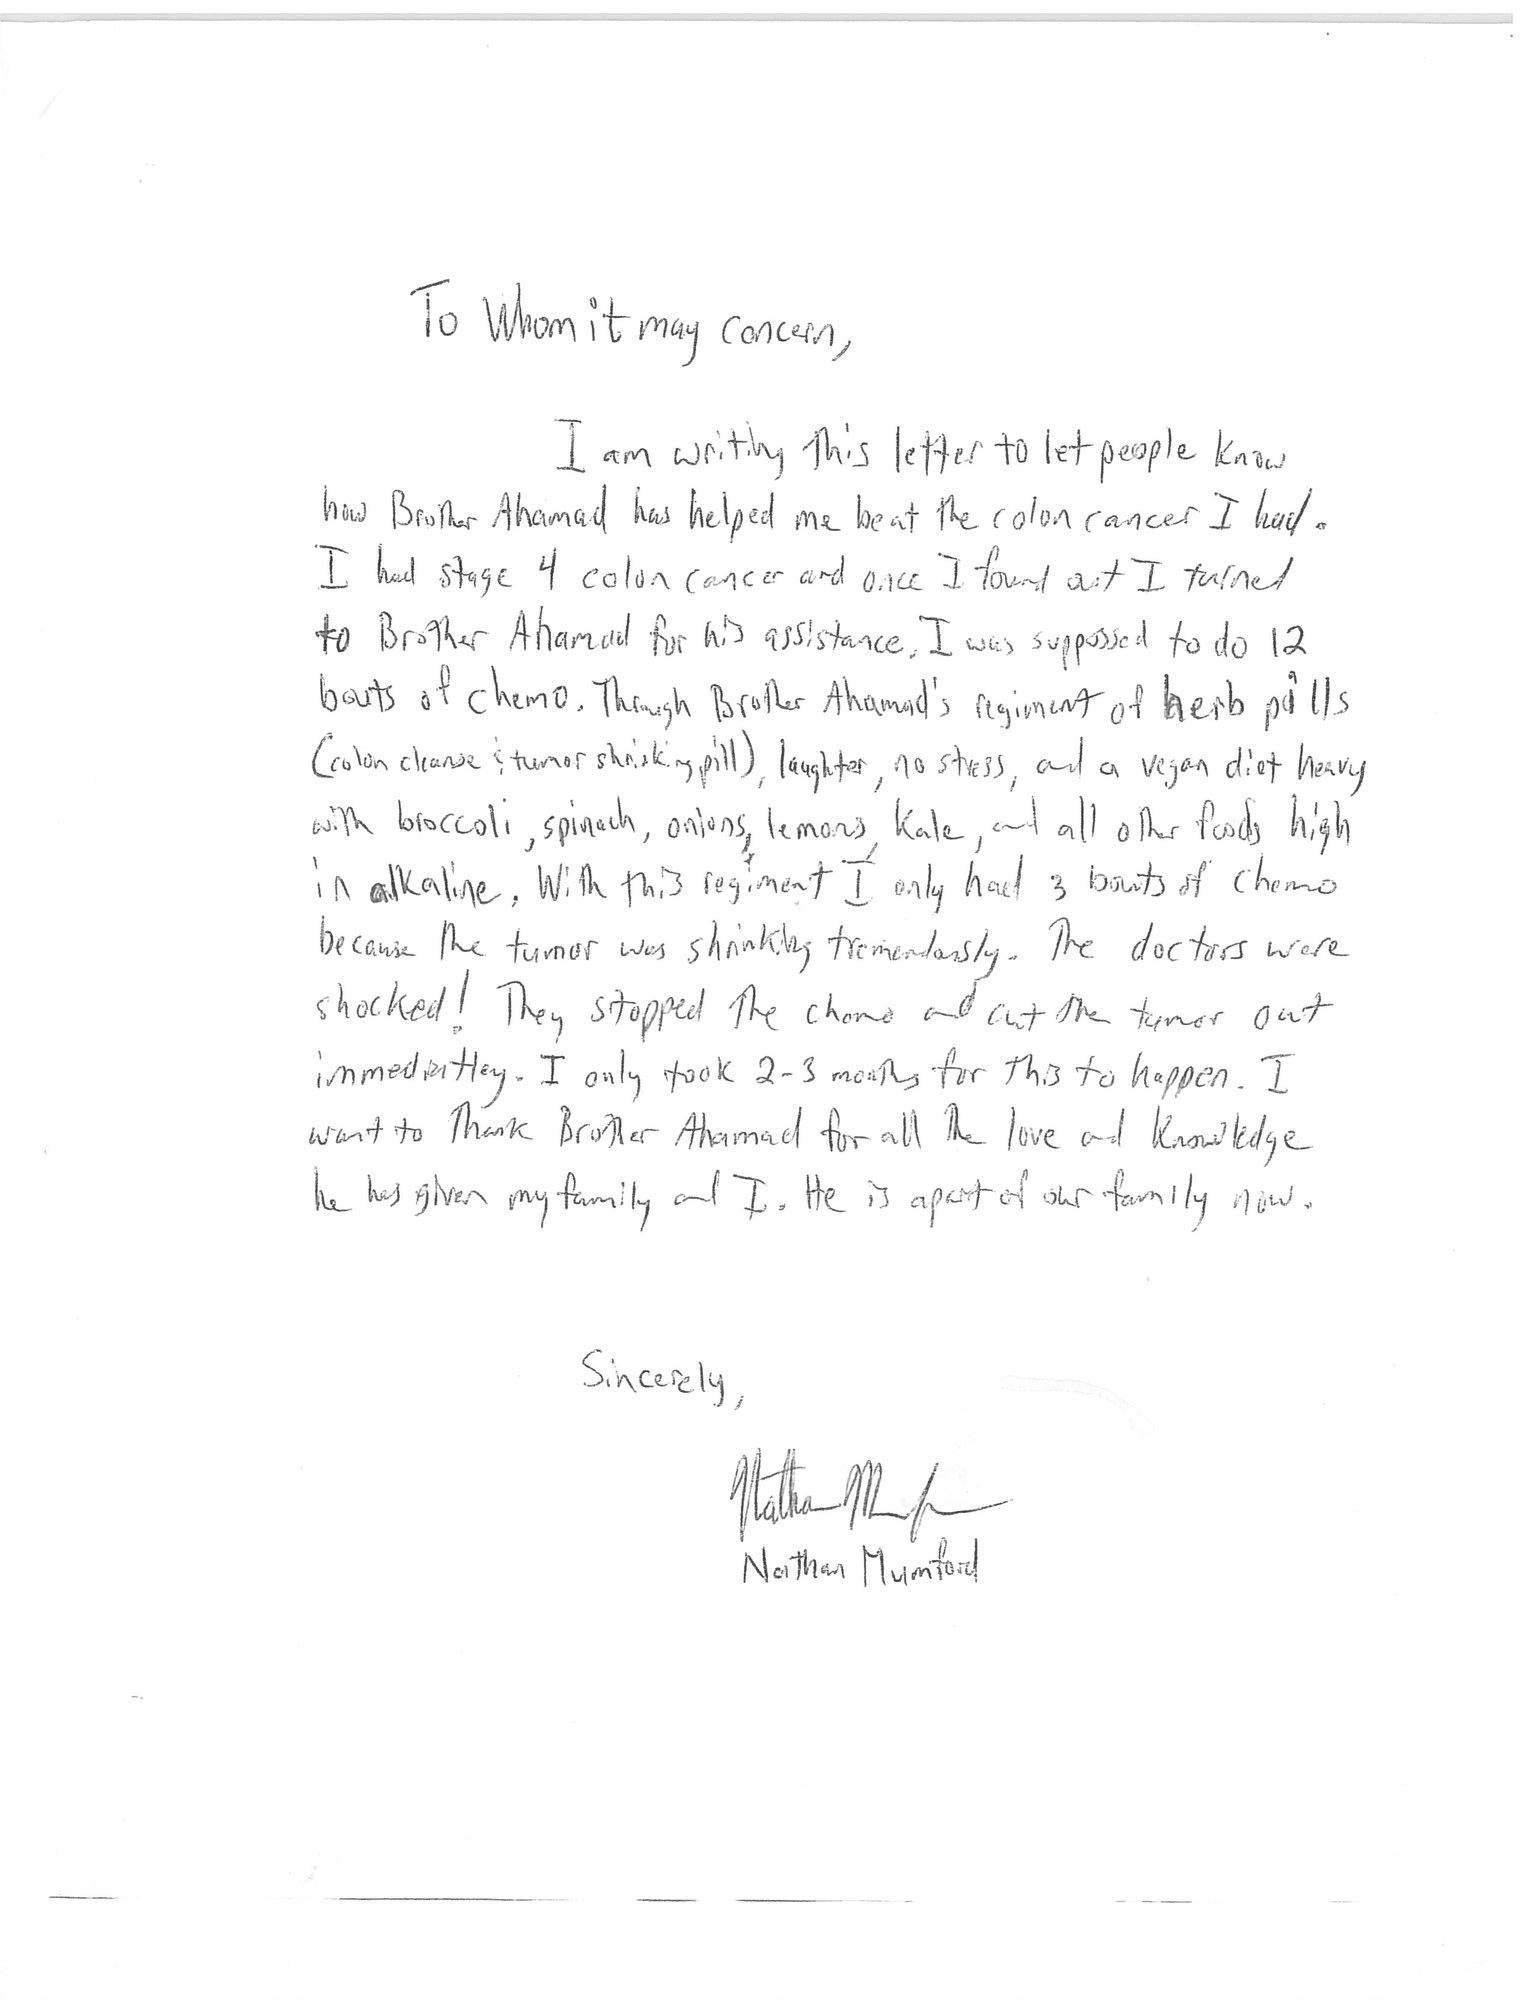 To Whom it may concern,
I am writing this letter to let people know
how Brother Ahamad has helped me beat the colon cancer I had.
I had stage 4 colon cancer and once I found out I turned
to Brother Ahamad for his assistance. I was suppossed to do 12
bouts of chemo. Through Brother Ahamad's regiment of herb pills
(colon cleanse & tumor shrinking pill), laughter, no stress, and a vegan diet heavy
with broccoli, spinach, onions, lemons, kale, and all other foods high
in alkaline. With this regiment I only had 3 bouts of chemo
because the tumor was shrinking tremendously. The doctors were
shocked! They stopped the chemo and cut the tumor out
immediatley. I only took 2-3 months for this to happen. I
want to thank Brother Ahamad for all the love and knowledge
he has given my family and I. He is apart of our family now.
Sincerely,
Nathan Mumford